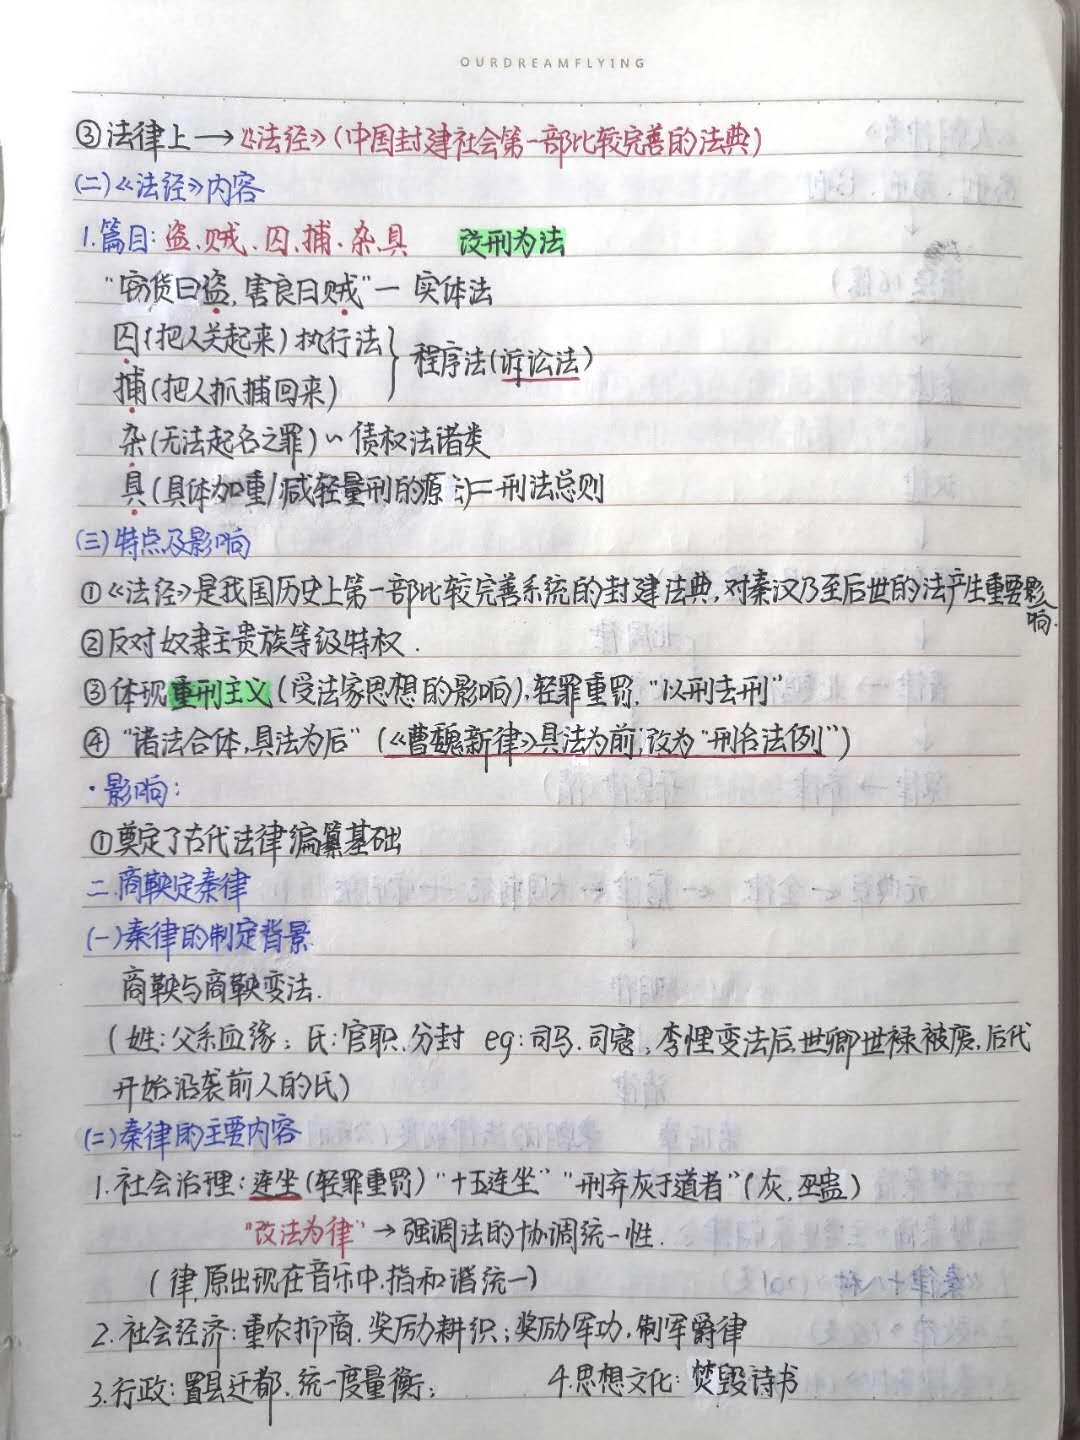 OURDREAMFLYING
③法律上→《法经》(中国封建社会第一部比较完善的法典)
(二)《法经》内容
1.篇目:盗、贼、囚、捕、杂、具 改刑为法
"窃货曰盗,害良曰贼"— 实体法
囚(把人关起来)执行法
程序法(诉讼法)
捕(把人抓捕回来)
杂(无法起名之罪)~债权法诸类
具(具体加重/减轻量刑的原法)=刑法总则
(三)特点及影响
①《法经》是我国历史上第一部比较完善系统的封建法典,对秦汉乃至后世的法产生重要影响.
②反对奴隶主贵族等级特权.
③体现重刑主义(受法家思想的影响),轻罪重罚,"以刑去刑"
④"诸法合体,具法为后"(《曹魏新律》具法为前,改为"刑名法例")
·影响:
①奠定了古代法律编纂基础
二.商鞅定秦律
(一)秦律的制定背景
商鞅与商鞅变法.
(姓:父系血缘;氏:官职、分封 eg:司马、司寇;李悝变法后,世卿世禄被废,后代
开始沿袭前人的氏)
(二)秦律的主要内容
1.社会治理:连坐(轻罪重罚)"十五连坐""刑弃灰于道者"(灰,巫蛊)
"改法为律"→强调法的协调统一性.
(律,原出现在音乐中,指和谐统一)
2.社会经济:重农抑商、奖励耕织;奖励军功,制军爵律
3.行政:置县迁都、统一度量衡; 4.思想文化:焚毁诗书